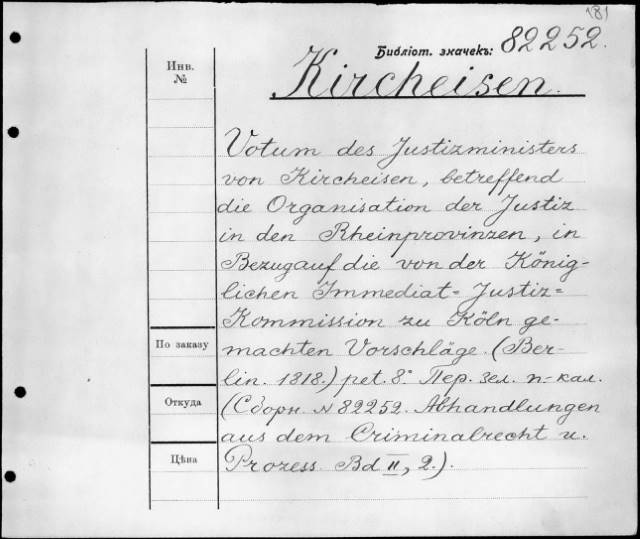 181
Библіот. значекъ: 82252.
Инв.
№
Kircheisen.
Votum des Justizministers
von Kircheisen, betreffend
die Organisation der Justiz
in den Rheinprovinzen, in
Bezug auf die von der König-
lichen Immediat= Justiz=
Kommission zu Köln ge-
machten Vorschläge. (Ber-
lin. 1818.) pet. 8.° Пер. зел. п-кал.
(Сборн. N 82252. Abhandlungen
aus dem Criminalrecht u.
Prozess. Bd II, 2.).
По заказу
Откуда
Цѣна